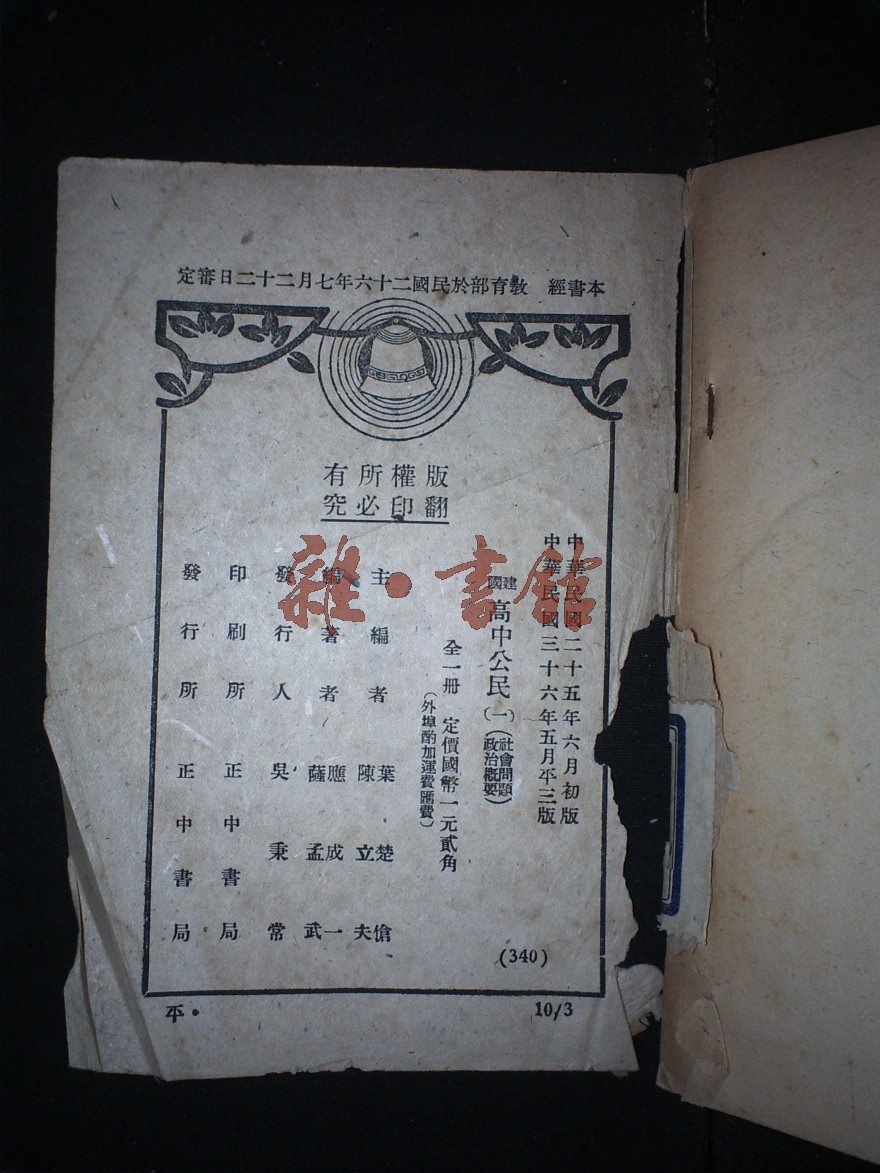 本書經　教育部於民國二十六年七月二十二日審定
版權所有
翻印必究
中華民國二十五年六月初版
中華民國三十六年五月平三版
建國 高中公民 (一) (社會問題 政治概要)
全一冊 定價國幣一元貳角
(外埠酌加運費匯費)
主編者 葉楚傖 陳立夫
編著者 應成一 薩孟武
發行人 吳秉常
印刷所 正中書局
發行所 正中書局
(340)
平·
10/3
雜·書館